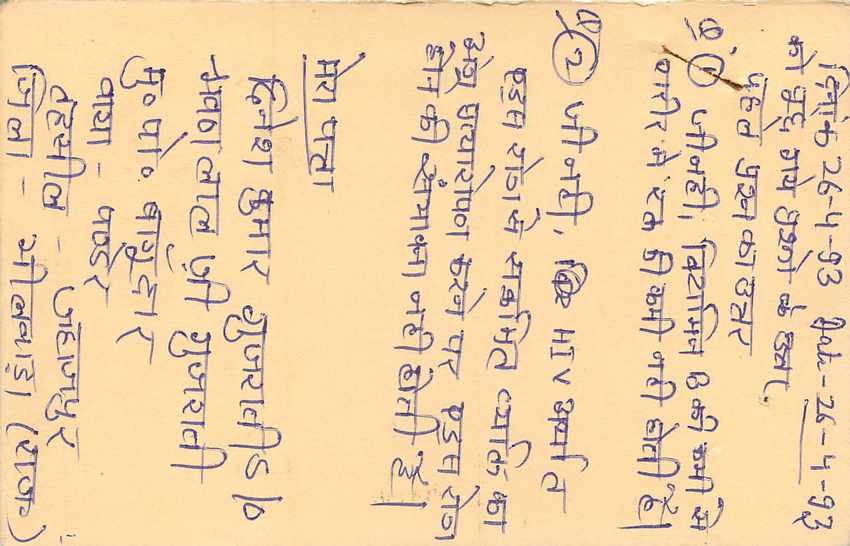 दिनांक 26-4-93 Date-26-4-93
को पुछे गये प्रश्नो के उत्तर.
पहले प्रश्न का उत्तर
Q. 1 जी नही, विटामिन की कमी से
शरीर मे रक्त की कमी नही होती है।
Q 2 जी नही, HIV अर्थात
एड्स रोग से संक्रमित व्यक्ति का
अंग प्रत्यारोपण करने पर एड्स रोग
होन की संभावना नही होती है।
मेरा पता
दिनेश कुमार गुजराती S/o
भवंर लाल जी गुजराती
मु० पो०
वाया - पण्डेर
तहसील - जहाजपुर
जिला - भीलवाड़ा (राज०)